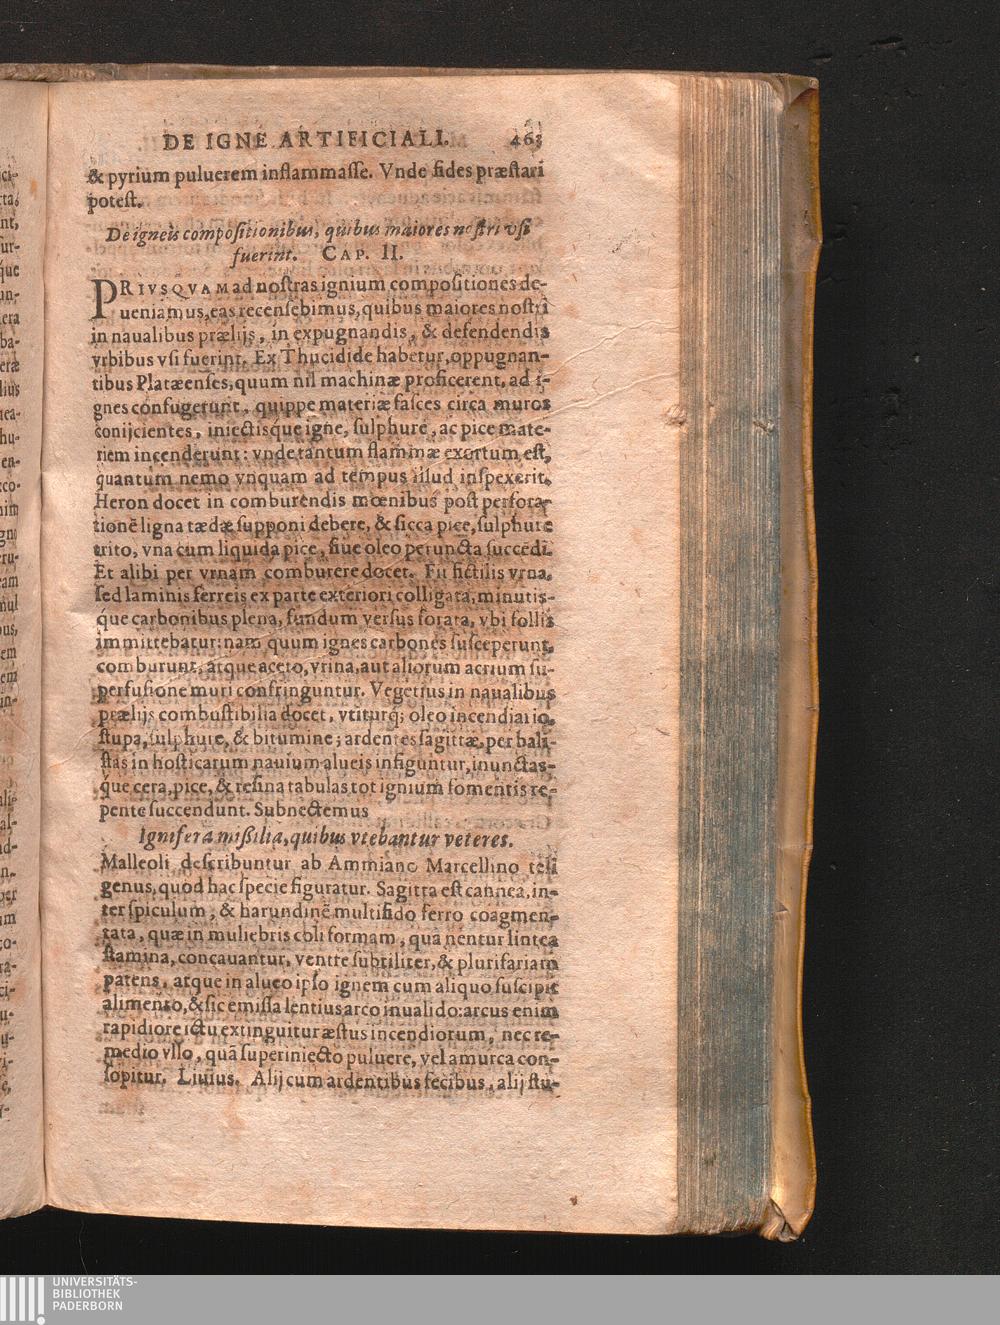 DE IGNE ARTIFICIALI. 463
& pyrium puluerem inflammasse. Vnde fides præstari
potest.
De igneis compositionibus, quibus maiores nostri vsi
fuerint. CAP. II.
PRIVSQVAM ad nostras ignium compositiones de-
ueniamus, eas recensebimus, quibus maiores nostri
in naualibus prælijs, in expugnandis, & defendendis
vrbibus vsi fuerint. Ex Thucidide habetur, oppugnan-
tibus Platæenses, quum nil machinæ proficerent, ad i-
gnes confugerunt, quippe materiæ fasces circa muros
conijcientes, iniectisque igne, sulphure, ac pice mate-
riem incenderunt: vnde tantum flammæ exortum est,
quantum nemo vnquam ad tempus illud inspexerit.
Heron docet in comburendis mœnibus post perfora-
tionē ligna tædæ supponi debere, & sicca pice, sulphure
trito, vna cum liquida pice, siue oleo peruncta succēdi.
Et alibi per vrnam comburere docet. Fit fictilis vrna,
sed laminis ferreis ex parte exteriori colligata, minutis-
que carbonibus plena, fundum versus forata, vbi follis
immittebatur: nam quum ignes carbones susceperunt,
comburunt, atque aceto, vrina, aut aliorum acrium su-
perfusione muri confringuntur. Vegetius in naualibus
prælijs combustibilia docet, vtiturq; oleo incendiario,
stupa, sulphure, & bitumine; ardentes sagittæ, per bali-
stas in hosticarum nauium alueis infiguntur, inunctas-
que cera, pice, & resina tabulas tot ignium fomentis re-
pente succendunt. Subnectemus
Ignifera mißilia, quibus vtebantur veteres.
Malleoli describuntur ab Ammiano Marcellino teli
genus, quod hac specie figuratur. Sagitta est cannea, in-
ter spiculum, & harundinē multifido ferro coagmen-
tata, quæ in muliebris coli formam, quā nentur lintea
stamina, concauantur, ventre subtiliter, & plurifariam
patens, atque in alueo ipso ignem cum aliquo suscipit
alimento, & sic emissa lentius arco inualido: arcus enim
rapidiore ictu extinguitur æstus incendiorum, nec re-
medio vllo, quā superiniecto puluere, vel amurca con-
sopitur. Liuius. Alij cum ardentibus fecibus, alij stu-
UNIVERSITÄTS-
BIBLIOTHEK
PADERBORN